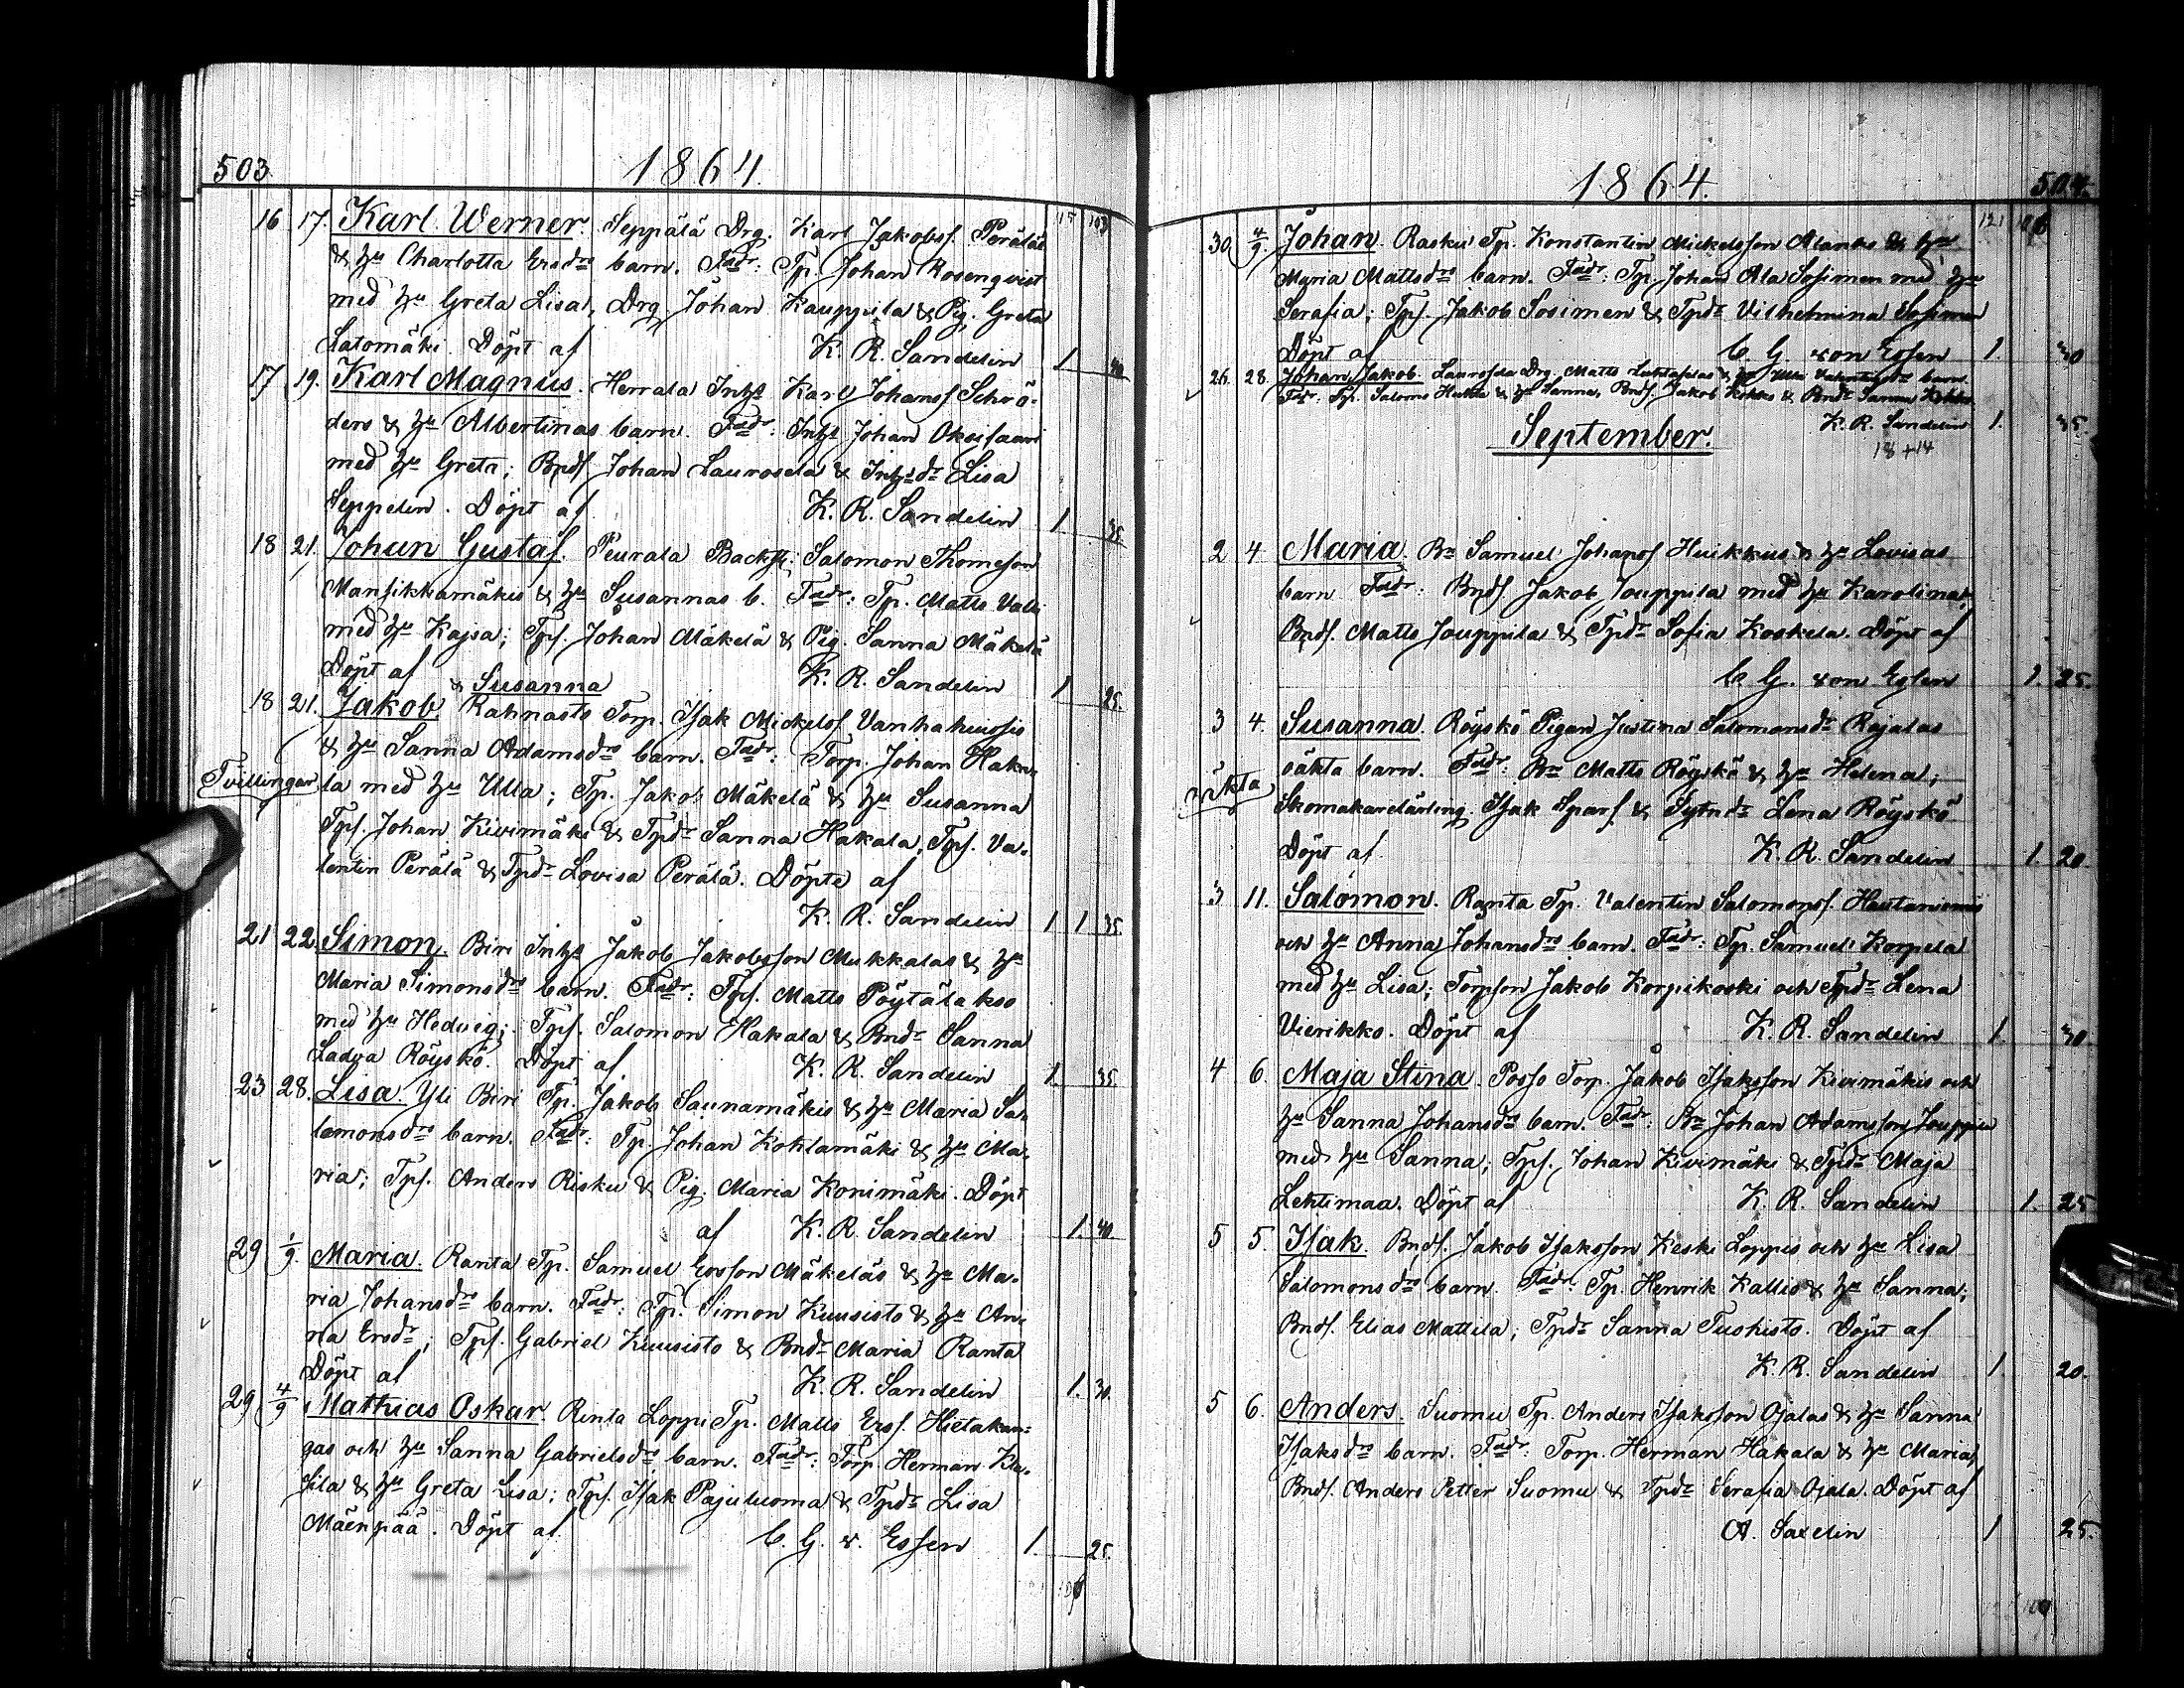 503
1864.
16 17. Karl Werner. Seppälä Drg. Karl Jakobsf. Peräläs
& Hu Charlotta Ersdrs barn. Fadr: Tp. Johan Rosenqvist
med Hu Greta Lisa, Drg Johan Kauppila & Pig. Greta
Latomäki. Döpt af K. R. Sandelin 1 40
17 19. Karl Magnus. Herrala Inhs Karl Johansf Schrö-
ders & Hu Albertinas barn. Fadr: Inhs Johan Oksisaari
med Hu Greta; Bndf Johan Laurosela & Inhsdr Lisa
Seppelin. Döpt af K. R. Sandelin 1 35.
18 21. Johan Gustaf. Peurala Backst. Salomon Thomeson
Mansikkamäkis & Hu Susannas b. Fadr: Tp. Matts Valli
med Hu Kajsa; Tpf. Johan Mäkelä & Pig. Sanna Mäkelä
Döpt af K. R. Sandelin 1 25.
& Susanna
18 21. Jakob. Rahnasto Torp. Isak Mickelsf Vanhahuissis
& Hu Sanna Adamsdrs barn. Fadr: Torp. Johan Haka-
Tvillingar la med Hu Ulla; Tp. Jakob Mäkelä & Hu Susanna
Tpf. Johan Kivimäki & Tpdr Sanna Hakala, Tpf. Va-
lentin Perälä & Tpdr Lovisa Perälä. Döpte af
K. R. Sandelin 1 1 35.
21 22. Simon. Biri Inhs Jakob Jakobsson Mukkalas & Hu
Maria Simonsdrs barn. Fadr: Tpf. Matts Pöytälakso
med Hu Hedvig; Tpf. Salomon Hakala & Bndr Sanna
Ladva Röyskö. Döpt af K. R. Sandelin 1. 35.
23 28. Lisa. Yli Biri Tp. Jakob Saunamäkis & Hu Maria Sa-
lomonsdrs barn. Fadr: Tp. Johan Kohlamäki & Hu Ma-
ria; Tpf. Anders Risku & Pig. Maria Konimäki. Döpt
af K. R. Sandelin 1. 40
29 1/9. Maria. Ranta Tp. Samuel Ersson Mäkeläs & Hu Ma-
ria Johansdrs barn. Fadr: Tp. Simon Kuusisto & Hu An-
na Ersdr; Tpf. Gabriel Kuusisto & Bndr Maria Ranta
Döpt af K. R. Sandelin 1. 30.
29 4/9 Mathias Oskar. Rinta Loppi Tp. Matts Ersf. Hietakan-
gas och Hu Sanna Gabrielsdrs barn. Fadr: Torp. Herman
& Hu Greta Lisa; Tpf. Isak Pajuluoma & Tpdr Lisa
Mäenpää. Döpt af C. G. v. Essen 1. 25.
1864.
504.
30. 4/9. Johan. Rasku Tp. Konstantin Mickelsson Alanko & Hu
Maria Mattsdrs barn. Fadr: Tp. Johan Ala Sosimen med Hu
Serafia; Tpf. Jakob Sosimen & Tpdr Vilhelmina Sosimen
Döpt af C. G. von Essen 1. 30
26. 28. Johan Jakob. Laurosela Drg. Matts & Hu Ulla barn.
Fadr: Tp. Salomo & Hu Sanna, Bndf. Jakob Kokko & Bndr Sanna Kokko
K. R. Sandelin 1. 35.
September.
18+14
2 4 Maria. Bn Samuel Johansf Huikkus & Hu Lovisas
barn Fadr: Bndf Jakob Jouppila med Hu Karolina,
Bndf. Matts Jouppila & Tpdr Sofia Koskela. Döpt af
C. G. von Essen 1. 25.
3 4. Susanna. Röyskö Pigan Justina Salomonsdr Rajalas
oäkta barn. Fadr: Bn Matts Röyskö & Hu Helena;
oäkta Skomakarelärling Isak Sparf & Sytndr Lena Röyskö
Döpt af K. R. Sandelin 1. 20
3 11. Salomon. Ranta Tp. Valentin Salomonsf. Hautaniemis
och Hu Anna Johansdrs barn. Fadr: Tp. Samuel Korpela
med Hu Lisa; Torpson Jakob Korpikoski och Tpdr Lena
Vierikko. Döpt af K. R. Sandelin 1. 30.
4 6. Maja Stina. Posso Torp. Jakob Isaksson Kivimäkis och
Hu Sanna Johansdrs barn. Fadr: Bn Johan Adamsson Jouppila
med Hu Sanna; Tpf. Johan Kivimäki & Tpdr Maja
Lehtimaa. Döpt af K. R. Sandelin 1. 25
5 5. Isak. Bndf. Jakob Isaksson Keski Loppis och Hu Lisa
Salomonsdrs barn. Fadr: Tp. Henrik Kallio & Hu Sanna;
Bndf. Elias Mattila; Tpdr Sanna Tuohisto. Döpt af
K. R. Sandelin 1. 20.
5 6. Anders. Suomu Tp. Anders Isaksson Ojalas & Hu Sanna
Isaksdrs barn. Fadr: Torp. Herman Hakala & Hu Maria,
Bndf. Anders Petter Suomu & Tpdr Serafia Ojala. Döpt af
A. Saxelin 1 25.